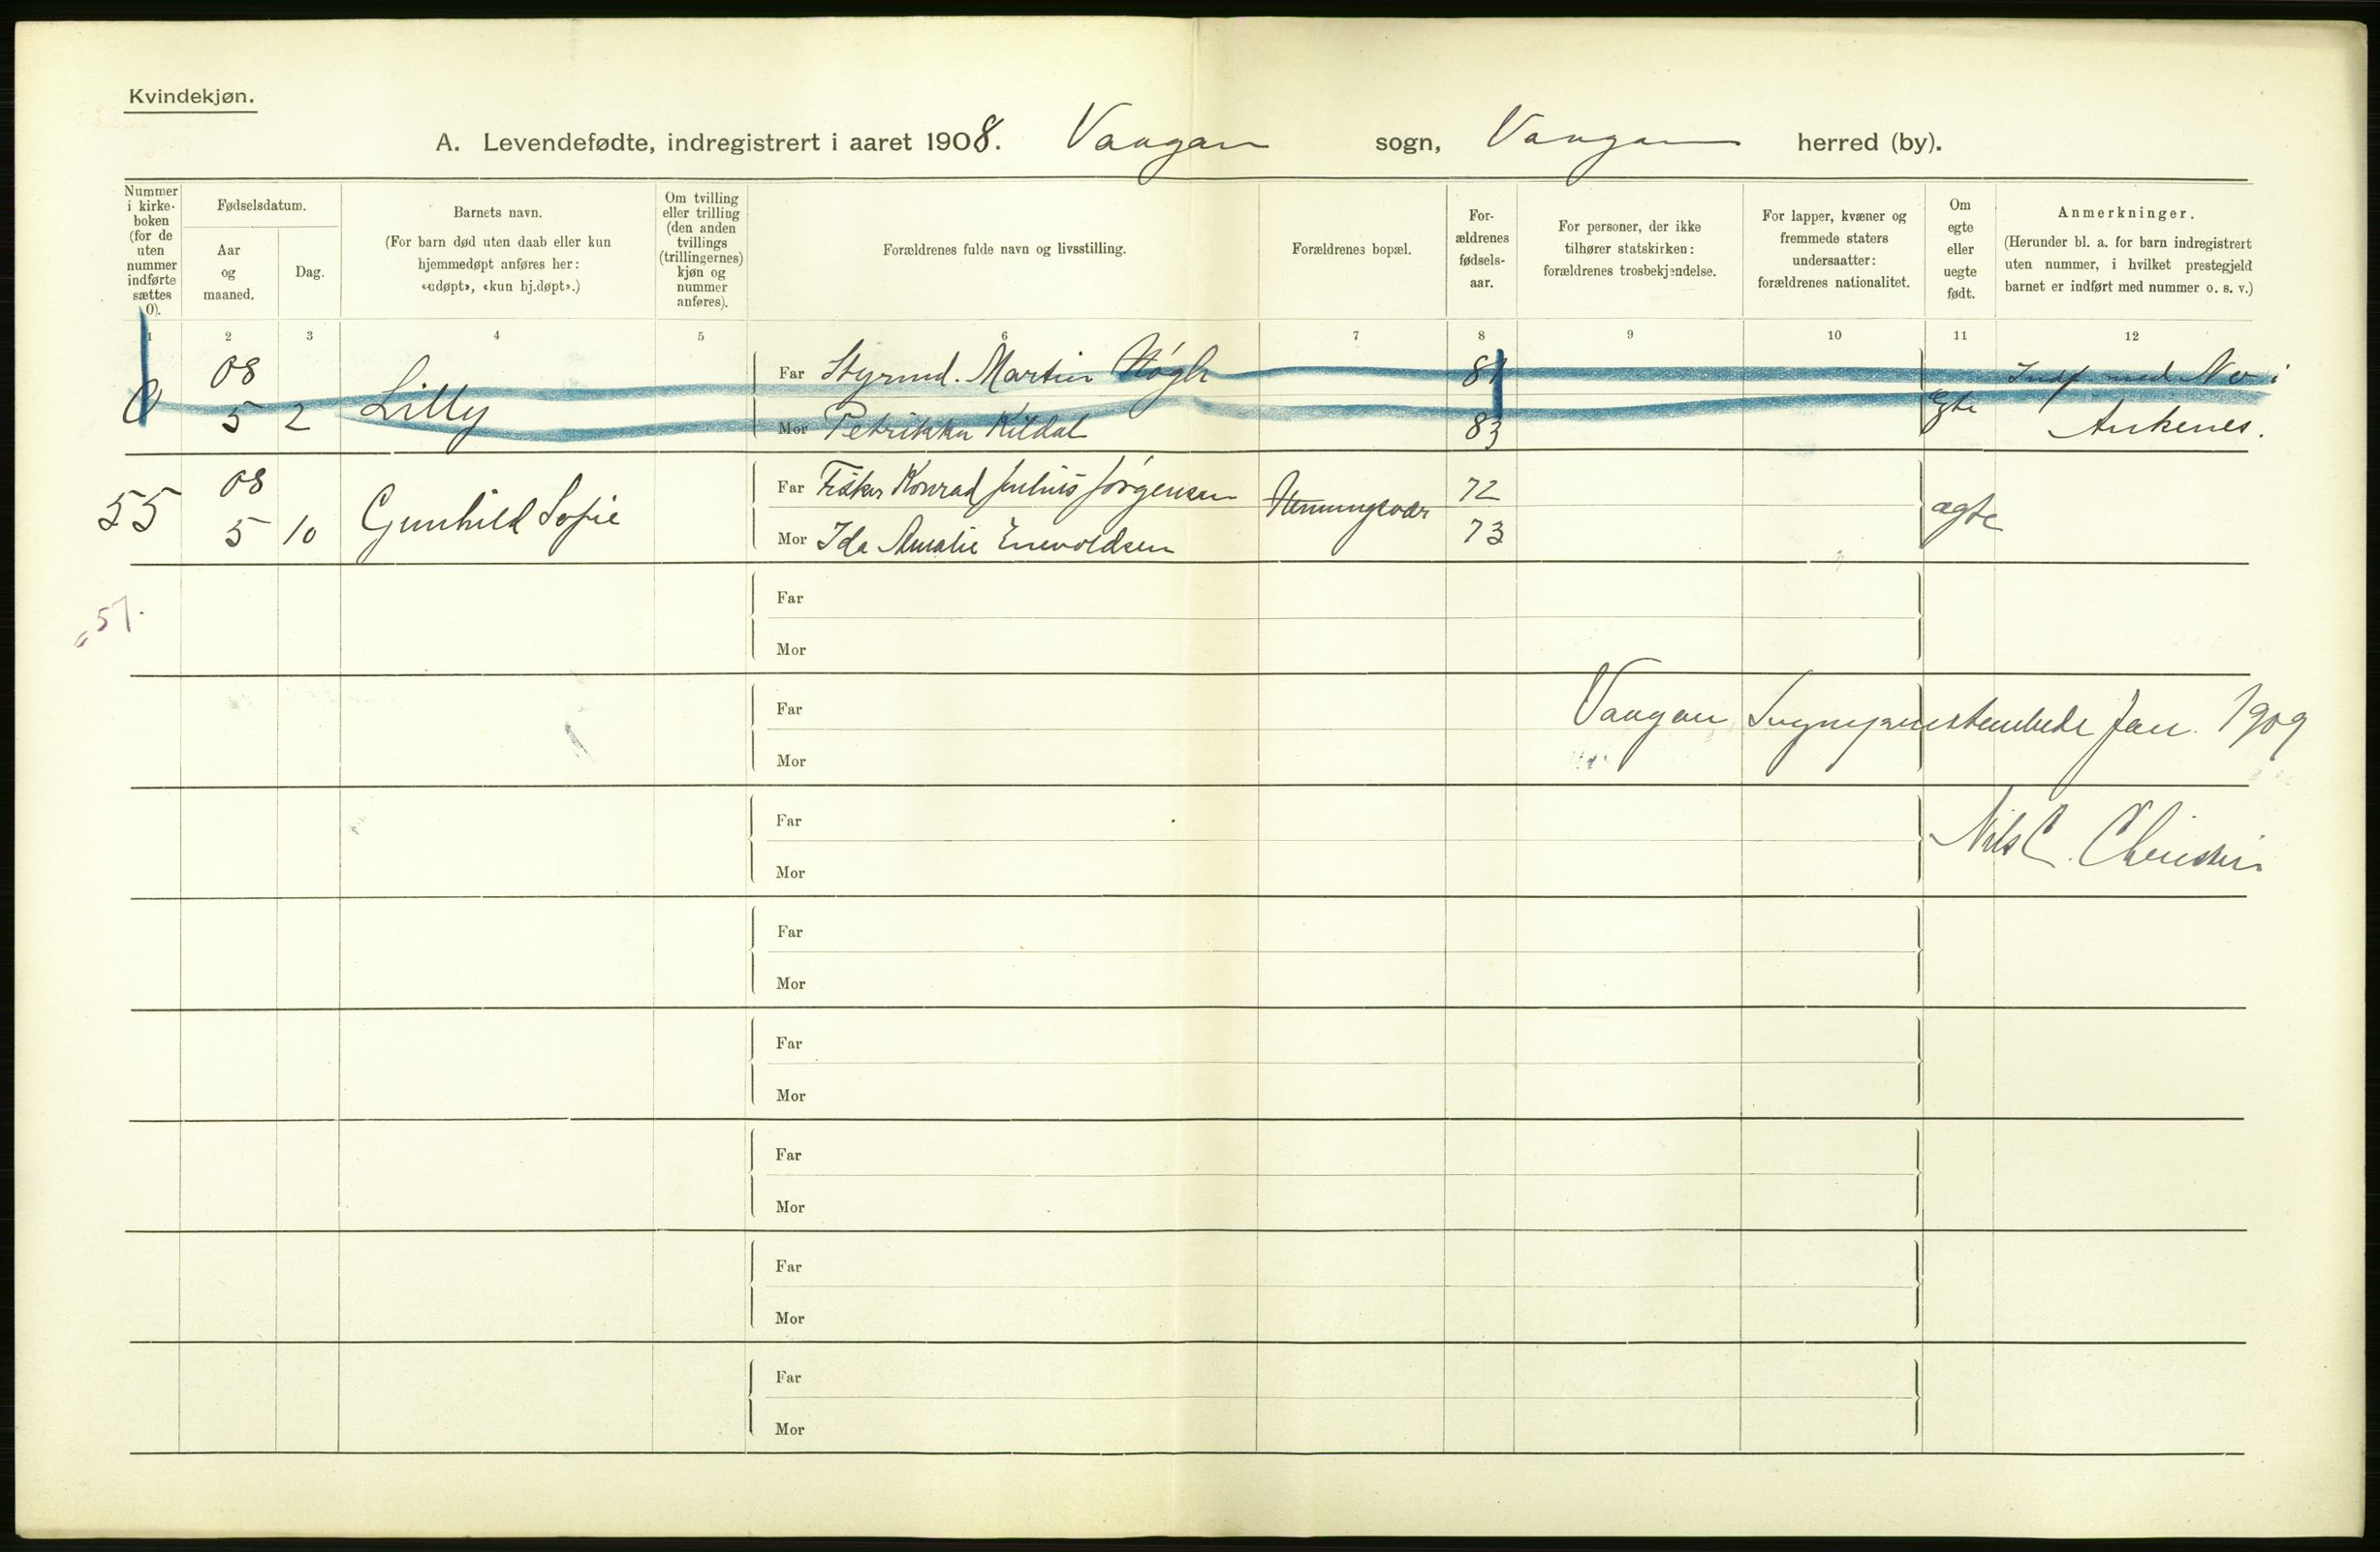 Kvindekjøn.
A. Levendefødte, indregistrert i aaret 1908. Vaagan sogn, Vaagan herred (by).
Nummer
i kirke-
boken
(for de
uten
nummer
indførte
sættes
0).
Fødselsdatum.
Aar
og
maaned.
Dag.
Barnets navn.
(For barn død uten daab eller kun
hjemmedøpt anføres her:
«udøpt», «kun hj.døpt».)
Om tvilling
eller trilling
(den anden
tvillings
(trillingernes)
kjøn og
nummer
anføres).
Forældrenes fulde navn og livsstilling.
Forældrenes bopæl.
For-
ældrenes
fødsels-
aar.
For personer, der ikke
tilhører statskirken:
forældrenes trosbekjendelse.
For lapper, kvæner og
fremmede staters
undersaatter:
forældrenes nationalitet.
Om
egte
eller
uegte
født.
Anmerkninger.
(Herunder bl. a. for barn indregistrert
uten nummer, i hvilket prestegjeld
barnet er indført med nummer o. s. v.)
1 2 3 4 5 6 7 8 9 10 11 12
08 Far Styrmd. Martin 81 Indf med No i
0 5 2 Lilly Mor Petrikka Kildal 83 Egte Ankenes.
08 Far Fisker Konrad Julius Jørgensen Henningsvær 72
55 5 10 Gunhild Sofie Mor Ida Amalie Enevoldsen 73 ægte
Far
57.
Mor
Far Vaagan Sogneprestembede Jan. 1909
Mor
Far Nils C. Christie
Mor
Far
Mor
Far
Mor
Far
Mor
Far
Mor
Far
Mor